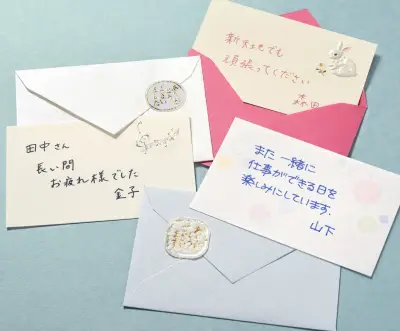 新天地でも
頑張ってください
森田
田中さん
長い間
お疲れ様でした
金子
また一緒に
仕事ができる日を
楽しみにしています。
山下